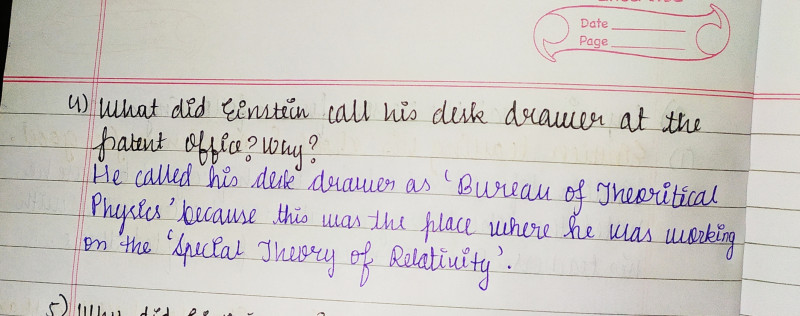 Date
Page
4) What did Einstein call his desk drawer at the
patent office? Why?
He called his desk drawer as 'Bureau of Theoritical
Physics' because this was the place where he was working
on the 'Special Theory of Relativity'.
5) Why did